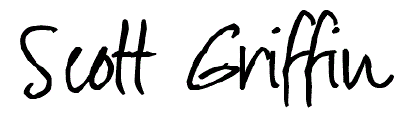 Scott Griffin